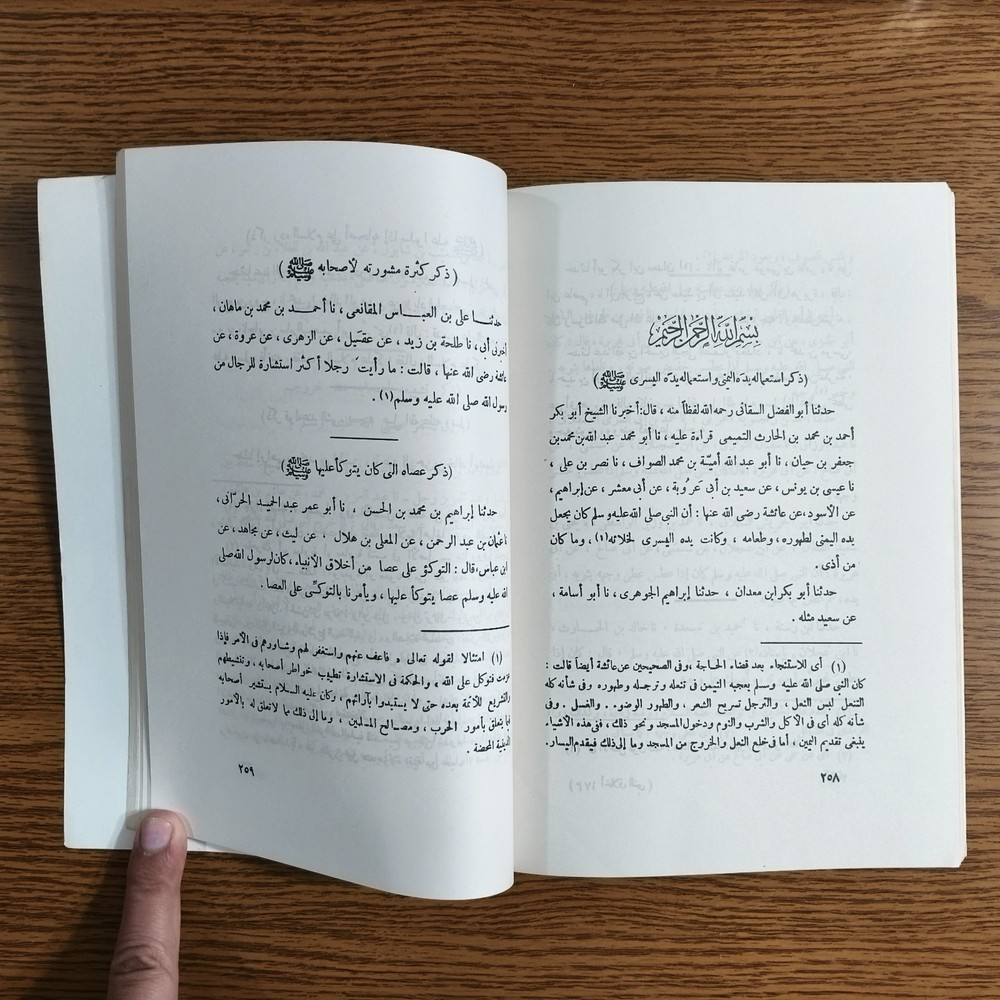 بسم الله الرحمن الرحيم
( ذكر استعماله يده اليمنى واستعماله يده اليسرى ﷺ )
حدثنا أبو الفضل السقانى رحمه الله لفظاً منه ، قال: أخبرنا الشيخ أبو بكر
أحمد بن محمد بن الحارث التميمى قراءة عليه ، نا أبو محمد عبد الله بن محمد بن
جعفر بن حيان ، نا أبو عبد الله أميّة بن محمد الصواف ، نا نصر بن على ،
نا عيسى بن يونس ، عن سعيد بن أبى عَروُبة ، عن أبى معشر ، عن إبراهيم ،
عن الأسود ، عن عائشة رضى الله عنها : أن النبى صلى الله عليه وسلم كان يجعل
يده اليمنى لطهوره ، وطعامه ، وكانت يده اليسرى لخلائه (١) ، وما كان
من أذى .
حدثنا أبو بكر ابن معدان ، حدثنا إبراهيم الجوهرى ، نا أبو أسامة ،
عن سعيد مثله .
(١) أى للاستنجاء بعد قضاء الحاجة ، وفى الصحيحين عن عائشة أيضاً قالت :
كان النبى صلى الله عليه وسلم يعجبه التيمن فى تنعله وترجله وطهوره وفى شأنه كله
التنعل لبس النعل ، والترجل تسريح الشعر ، والطهور الوضوء . . والغسل . وفى
شأنه كله أى فى الأكل والشرب والنوم ودخول المسجد ونحو ذلك ، ففى هذه الأشياء
ينبغى تقديم اليمين ، أما فى خلع النعل والخروج من المسجد وما إلى ذلك فيقدم اليسار .
٢٥٨
( ذكر كثرة مشورته لأصحابه ﷺ )
حدثنا على بن العباس المقانعى ، نا أحمد بن محمد بن ماهان ،
أخبرنى أبى ، نا طلحة بن زيد ، عن عقَيل ، عن الزهرى ، عن عروة ، عن
عائشة رضى الله عنها ، قالت : ما رأيتُ رجلا أكثر استشارة للرجال من
رسول الله صلى الله عليه وسلم (١) .
( ذكر عصاه التى كان يتوكأ عليها ﷺ )
حدثنا إبراهيم بن محمد بن الحسن ، نا أبو عمر عبد الحميد الحرّانى ،
نا عثمان بن عبد الرحمن ، عن المعلى بن هلال ، عن ليث ، عن مجاهد ، عن
ابن عباس ، قال : التوكؤ على عصا من أخلاق الأنبياء ، كان لرسول الله صلى
الله عليه وسلم عصا يتوكأ عليها ، ويأمرنا بالتوكّى على العصا .
(١) امتثالا لقوله تعالى « فاعف عنهم واستغفر لهم وشاورهم فى الأمر فإذا
عزمت فتوكل على الله » والحكمة فى الاستشارة تطييب خواطر أصحابه ، وتنشيطهم
والتشريع للأئمة بعده حتى لا يستبدوا بآرائهم ، وكان عليه السلام يستشير أصحابه
فيما يتعلق بأمور الحرب ، ومصالح المسلمين ، وما إلى ذلك مما لا تعلق له بالأمور
الدينية المحضة .
٢٥٩